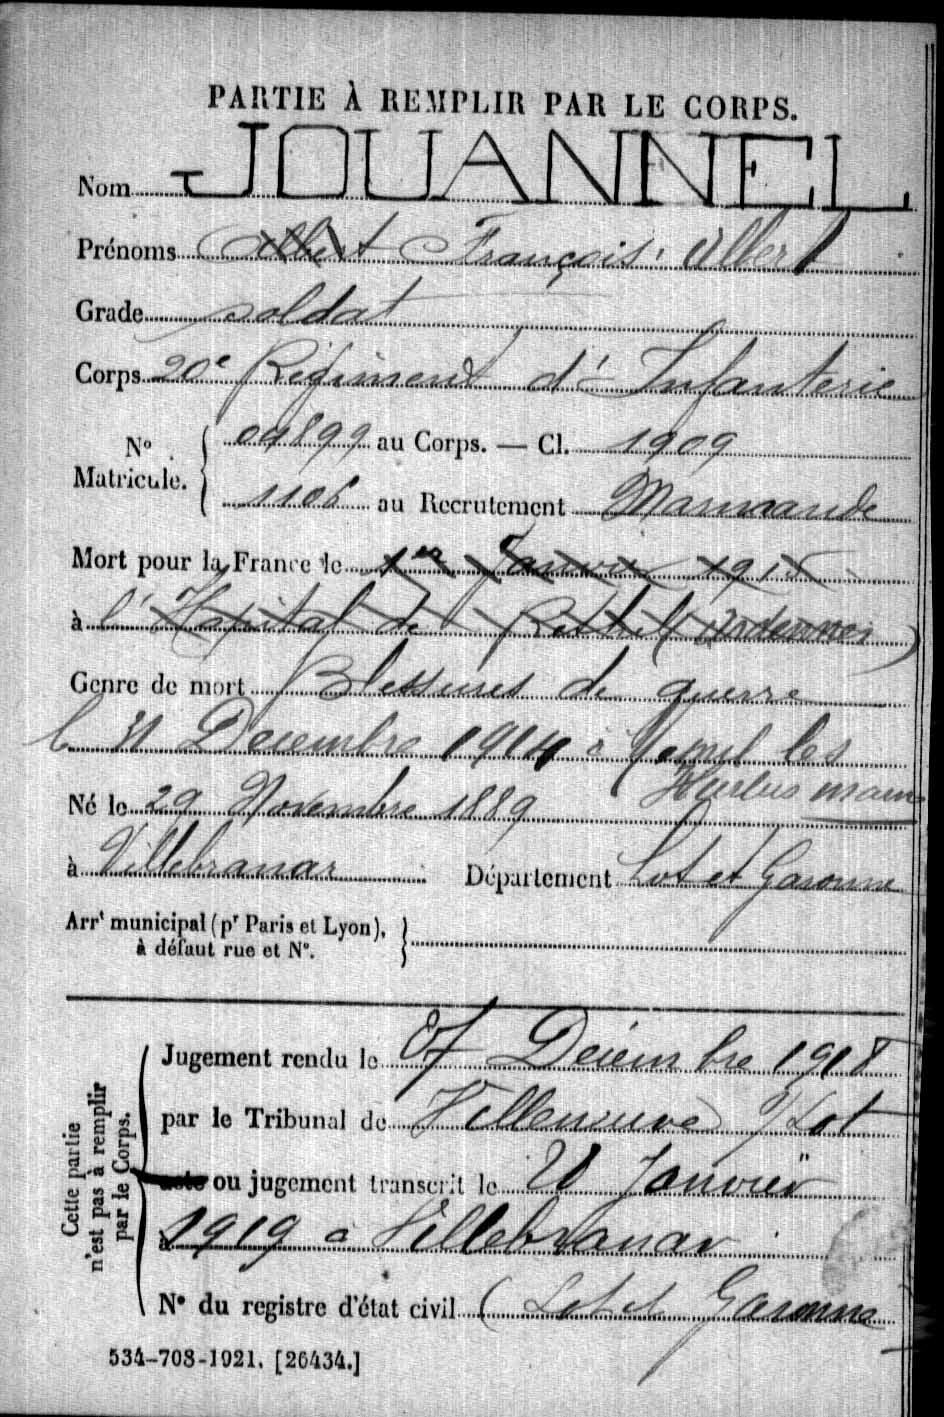 PARTIE À REMPLIR PAR LE CORPS.
Nom JOUANNEL
Prénoms Albert François, Albert
Grade soldat
Corps 20e Régiment d'Infanterie
No Matricule. { 09899 au Corps. — Cl. 1909
1106 au Recrutement Marmande
Mort pour la France le 1er Janvier 1915
à l'Hôpital de Rethel (Ardennes)
Genre de mort Blessures de guerre
le 31 Décembre 1914 à Mesnil les
Hurlus marne
Né le 29 Novembre 1889
à Villebramar Département Lot et Garonne
Arrt municipal (pr Paris et Lyon), }
à défaut rue et No.
Cette partie n'est pas à remplir par le Corps.
Jugement rendu le 27 Décembre 1918
par le Tribunal de Villeneuve s/Lot
acte ou jugement transcrit le 20 Janvier
à 1919 à Villebramar
No du registre d'état civil (Lot et Garonne)
534-708-1921. [26434.]